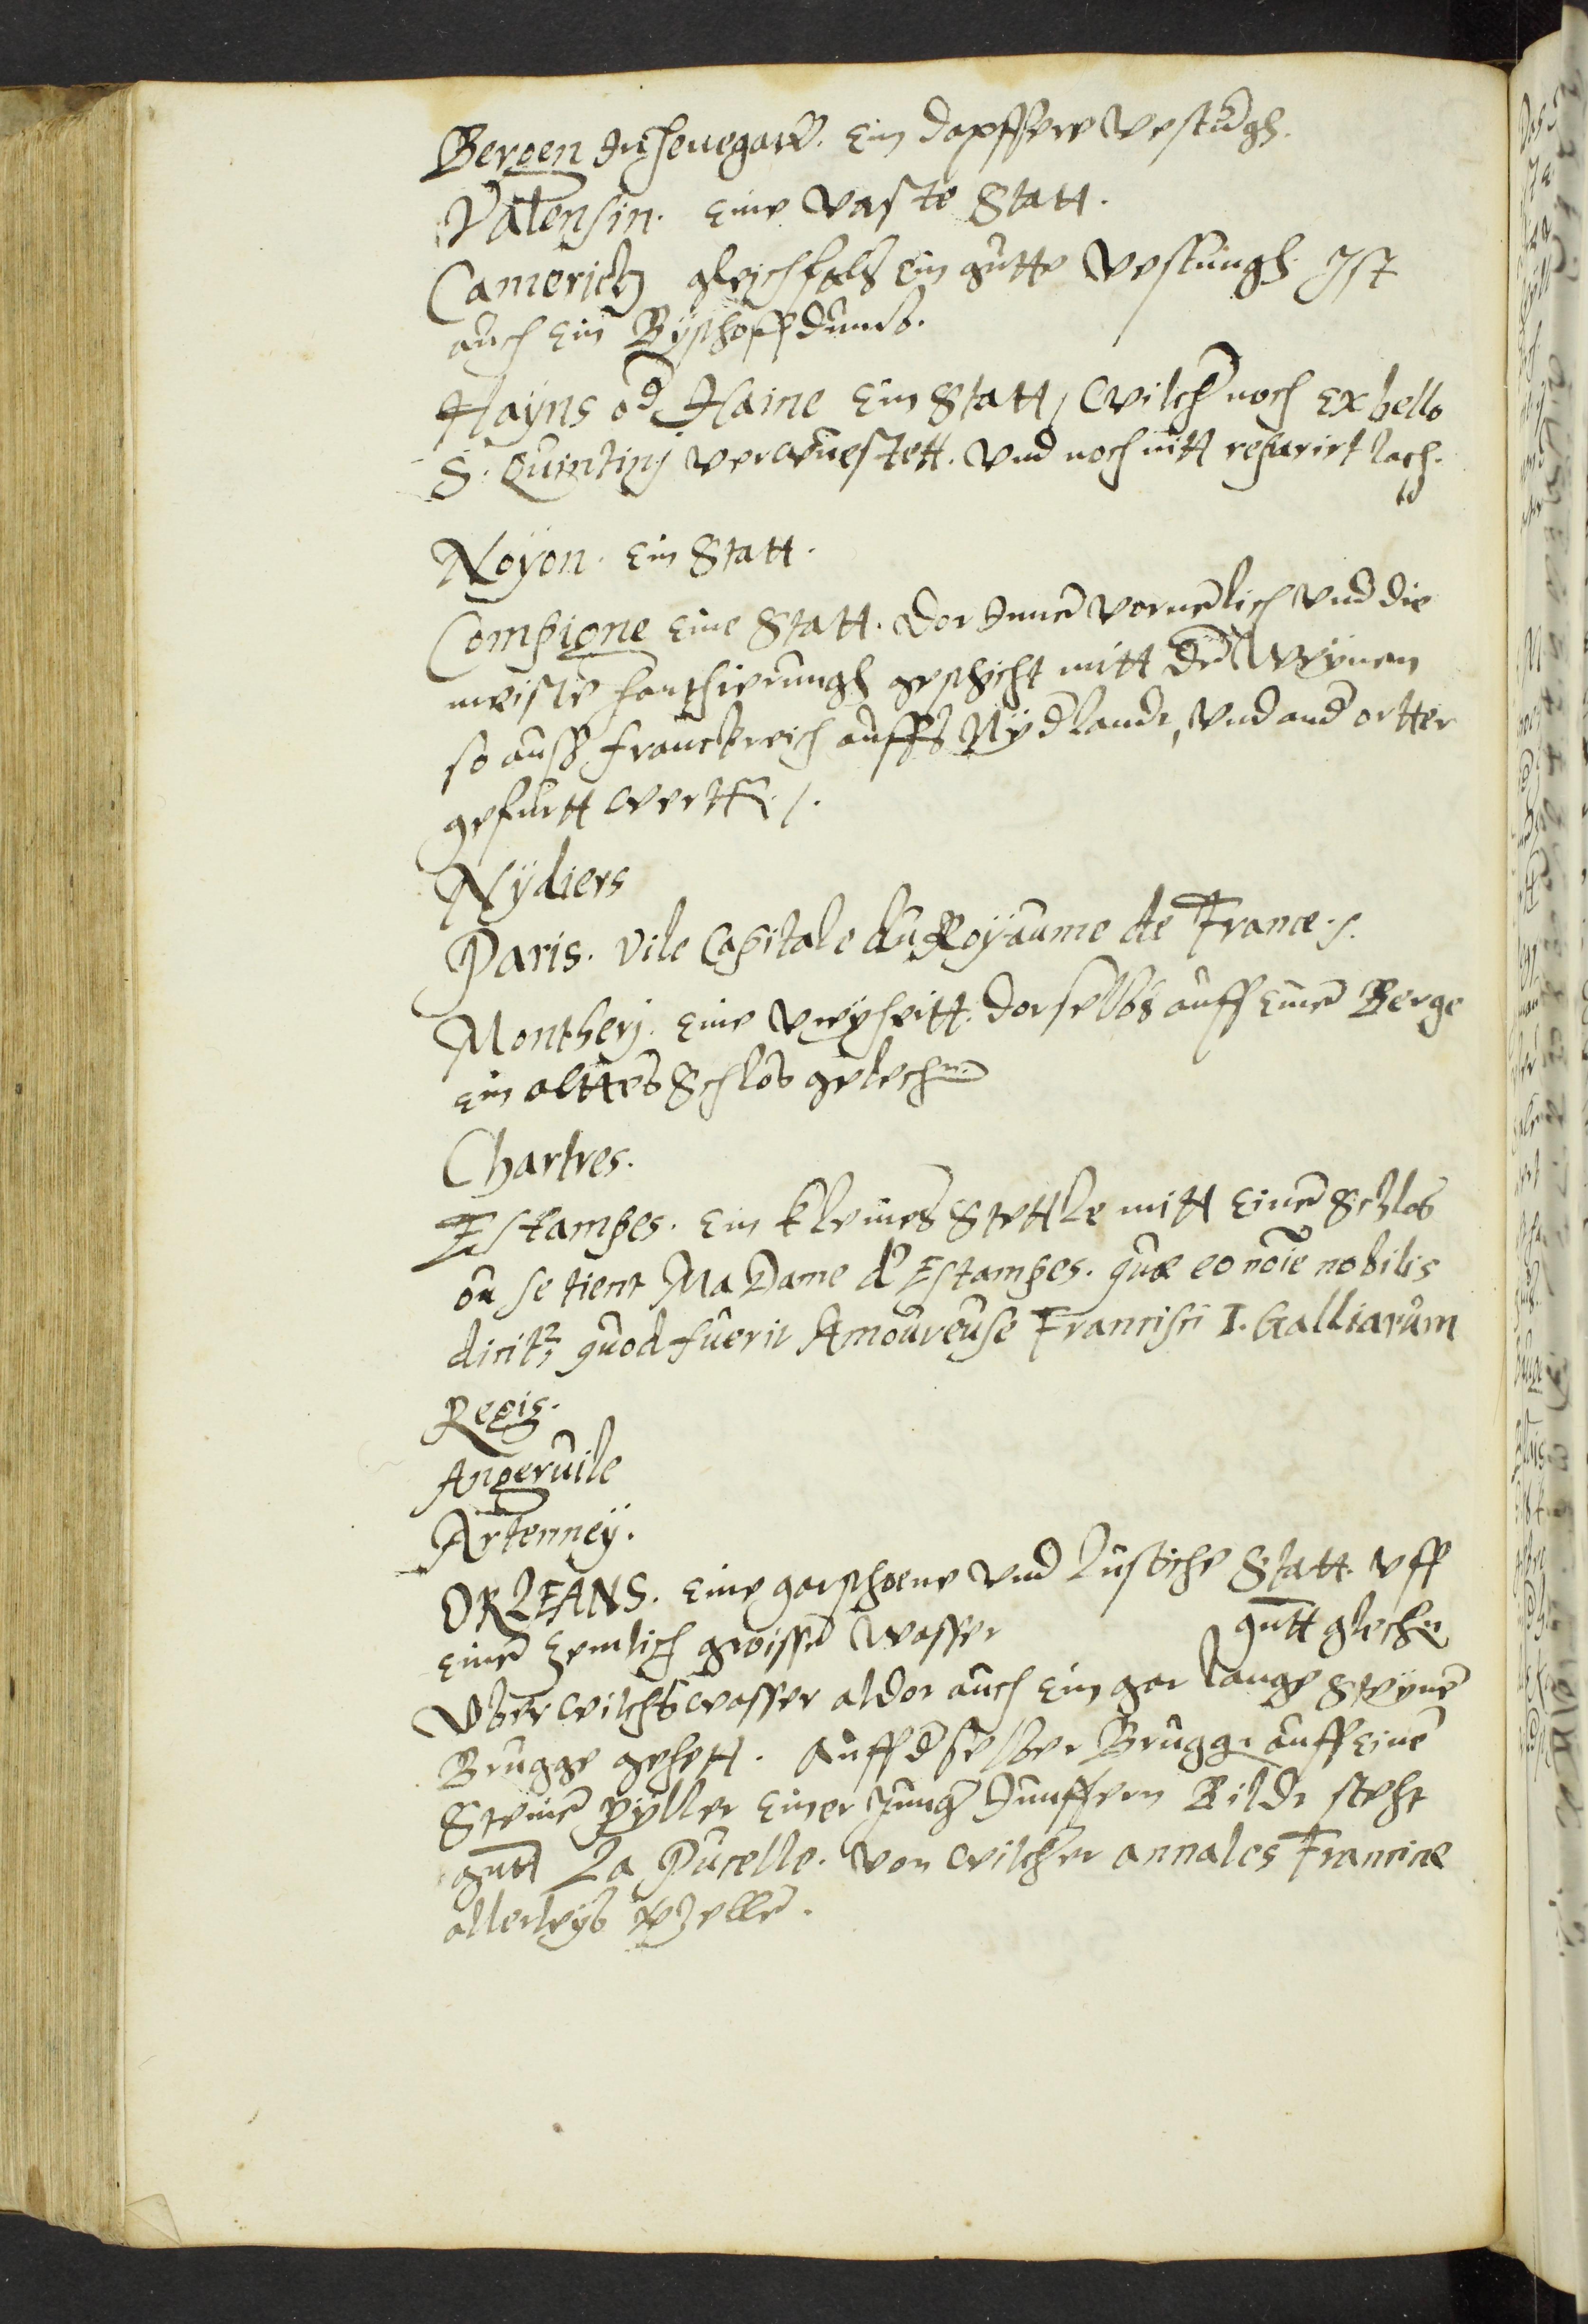 Bergen In henegaw. Ein dapffere vestu̅gh.
Valensin. Eine vaste Statt.
Camerich gleichfals ein gutte vestungh. Ist
auch Ein Byschoffdumb.
Hayns od Haine Ein Statt, wilche noch ex bello
S. Quintinj verwuestett. vnd noch nitt reparirt lach.
Noÿon. Ein Statt.
Compigne Eine Statt. Dor Inne̅ vorne̅lich vnd die
meiste hanthierungh geschicht mitt de̅ Weÿnen
so auss franckreich auffs Nÿdlandt, vnd and ortter
gefurtt wertt /.
Nÿdiers
Paris. Vile Capitale du Roÿaume de France /.
Montherj. Eine vreÿheitt. dorselbs auff Eine̅ Berge
ein alttes Schlos gelechn̅
Chartres.
Estampes. Ein kleines Stettle mitt Eine̅ Schlos
ou se tient MaDame d'Estampes. quæ eo no̅ie nobilis
dicit̅, quod fuerit Amoureuse Francisci I. Galliarum
Regis.
Angeruile
Artenneÿ.
ORLEANS. Eine gar schoene vnd Lustiche Statt. vff
Eine̅ zemlich groisse̅ Wasser gna̅tt glechn
Vber wilchs wasser aldor auch Ein gar lange Steÿne̅
Brugge gehett. Auff dselber Brugge auff Eine̅
Steine̅ Pÿller Einer Junge̅ Junffern Bilde steht
gna̅tt La Pucelle. von wilcher annales Franciæ
allerleÿs